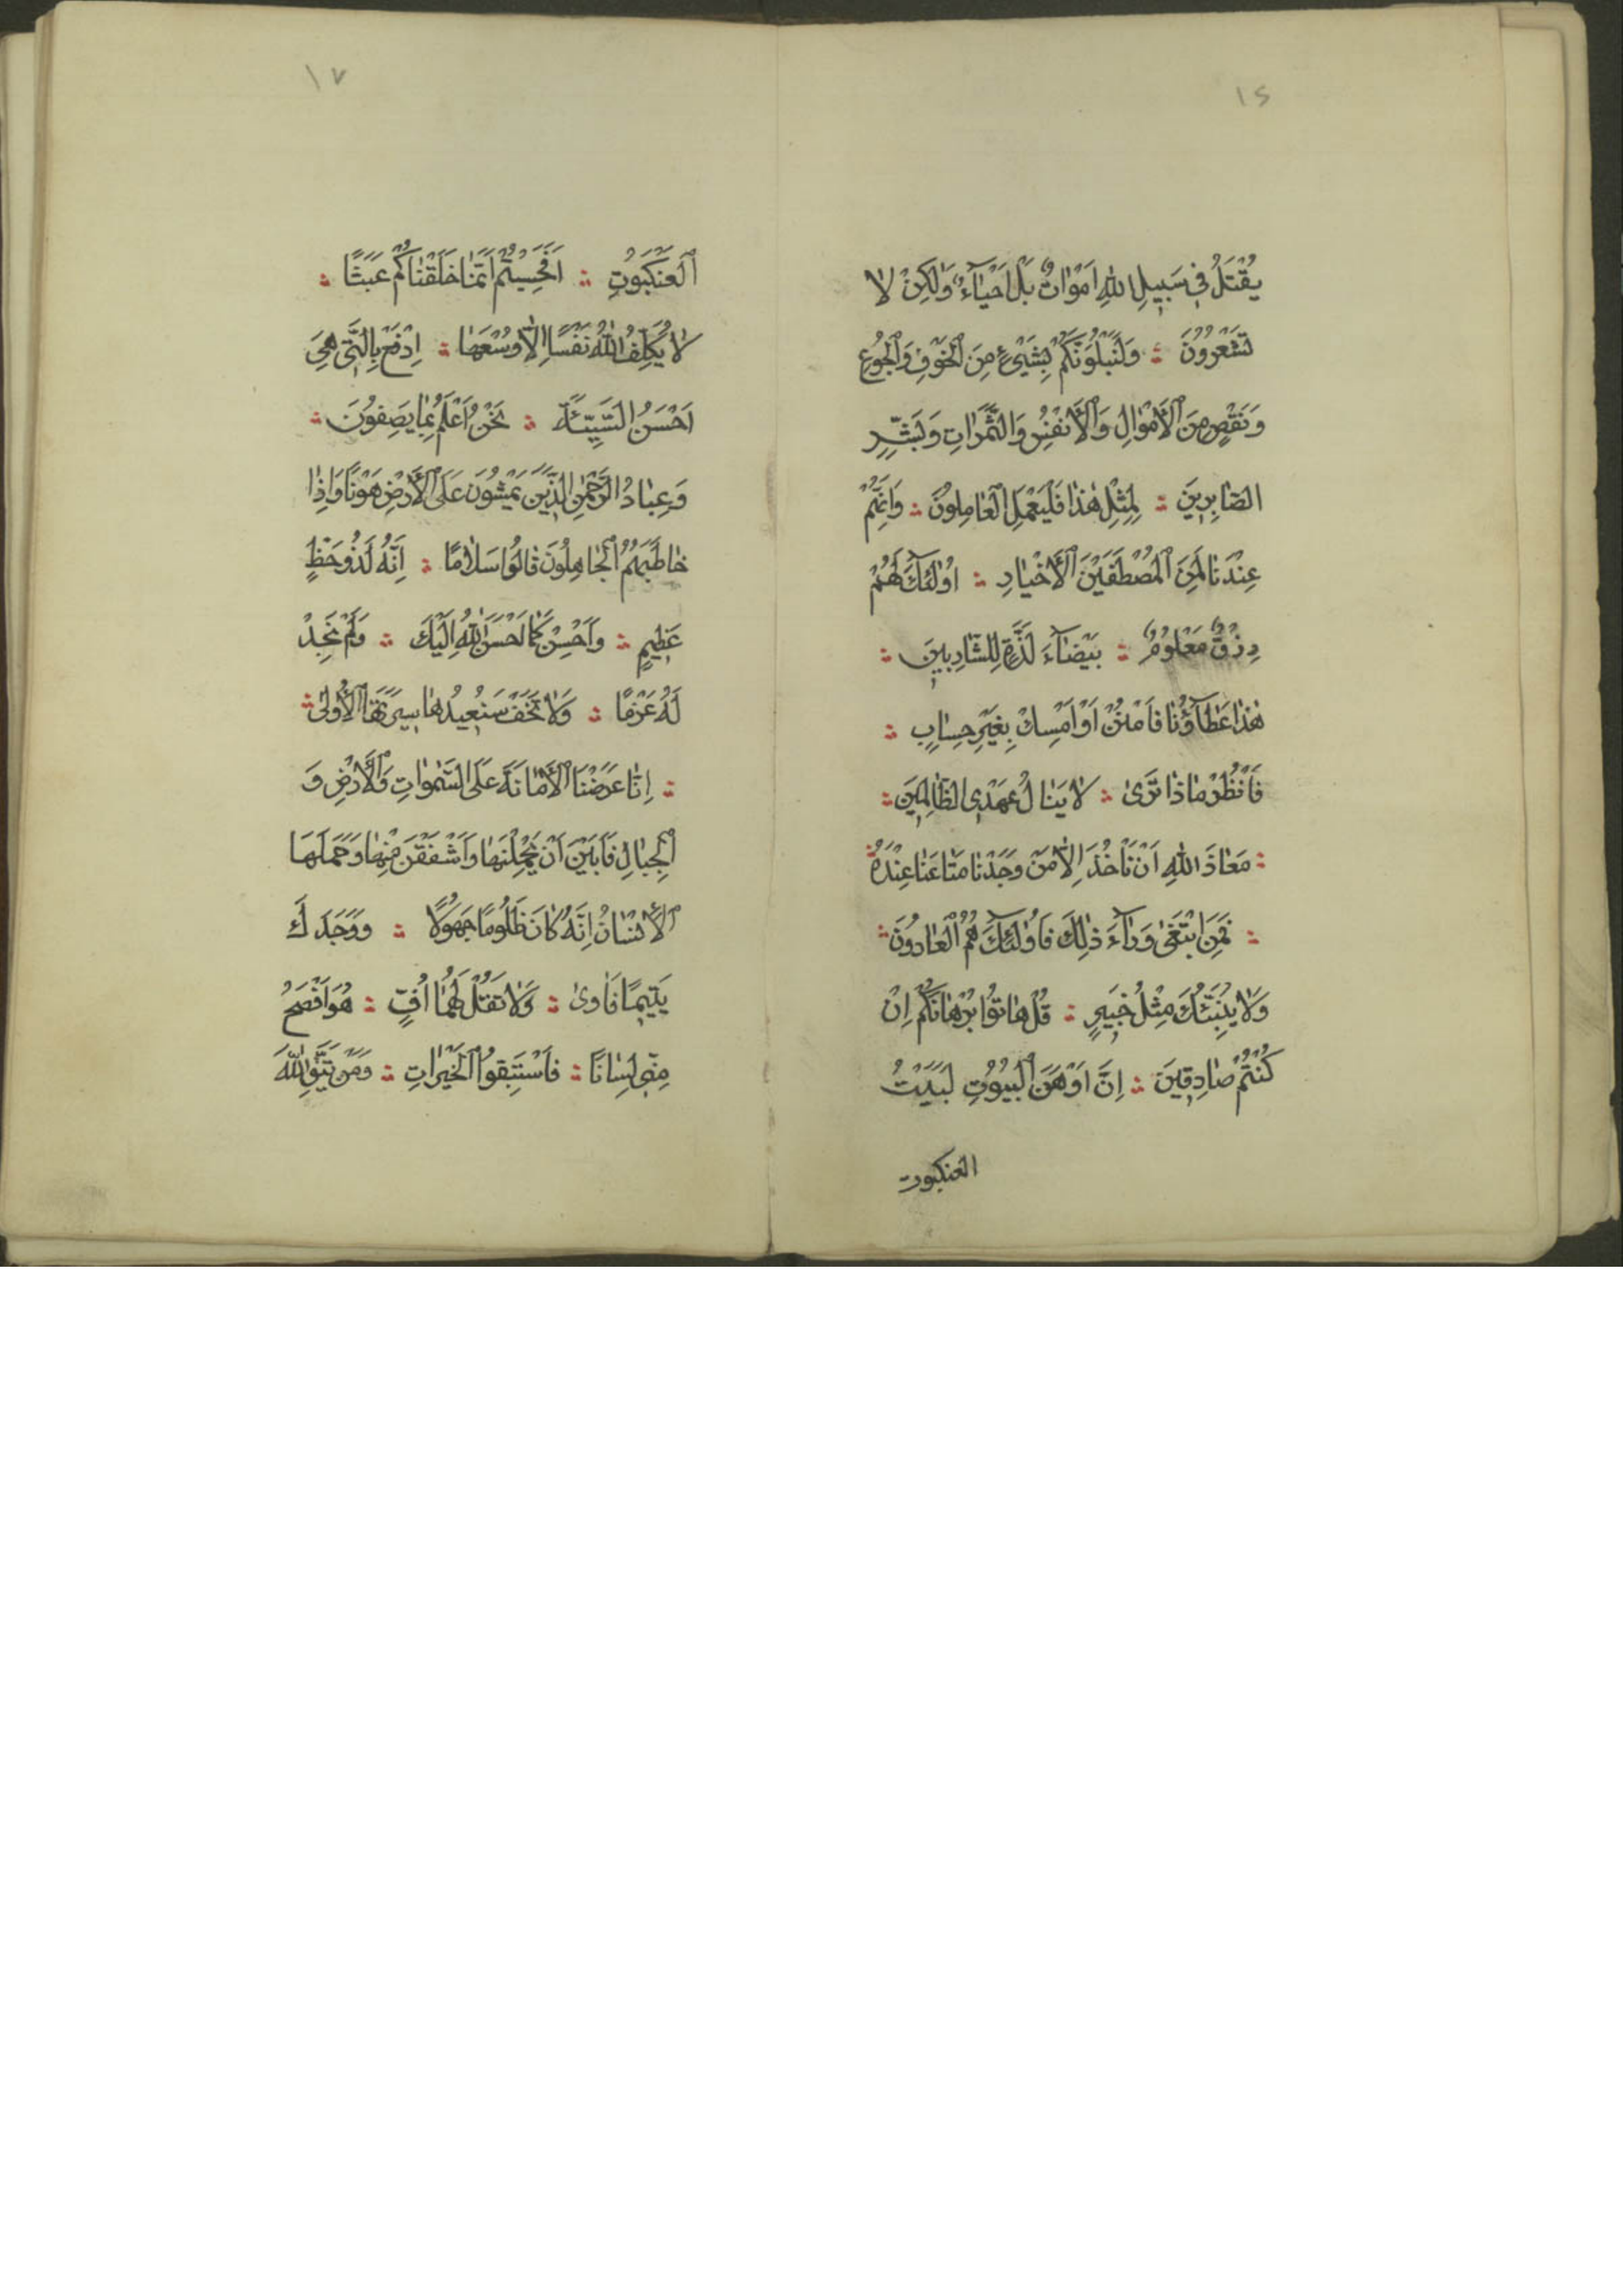 ١٤
يُقْتَلُ فِي سَبِيلِ اللّٰهِ اَمْوَاتٌ بَلْ اَحْيَآءٌ وَلٰكِنْ لَا
تَشْعُرُونَ ؞ وَلَنَبْلُوَنَّكُمْ بِشَيْءٍ مِنَ الْخَوْفِ وَالْجُوعِ
وَنَقْصٍ مِنَ الْاَمْوَالِ وَالْاَنْفُسِ وَالثَّمَرَاتِ وَبَشِّرِ
الصَّابِرِينَ ؞ لِمِثْلِ هٰذَا فَلْيَعْمَلِ الْعَامِلُونَ ؞ وَاِنَّهُمْ
عِنْدَنَا لَمِنَ الْمُصْطَفَيْنَ الْاَخْيَارِ ؞ اُولٰٓئِكَ لَهُمْ
رِزْقٌ مَعْلُومٌ ؞ بَيْضَآءَ لَذَّةٍ لِلشَّارِبِينَ ؞
هٰذَا عَطَآؤُنَا فَامْنُنْ اَوْ اَمْسِكْ بِغَيْرِ حِسَابٍ ؞
فَانْظُرْ مَاذَا تَرٰى ؞ لَا يَنَالُ عَهْدِي الظَّالِمِينَ ؞
؞ مَعَاذَ اللّٰهِ اَنْ نَأْخُذَ اِلَّا مَنْ وَجَدْنَا مَتَاعَنَا عِنْدَهُ ؞
؞ فَمَنِ ابْتَغٰى وَرَآءَ ذٰلِكَ فَاُولٰٓئِكَ هُمُ الْعَادُونَ ؞
وَلَا يُنَبِّئُكَ مِثْلُ خَبِيرٍ ؞ قُلْ هَاتُوا بُرْهَانَكُمْ اِنْ
كُنْتُمْ صَادِقِينَ ؞ اِنَّ اَوْهَنَ الْبُيُوتِ لَبَيْتُ
العنكبوت
١٧
الْعَنْكَبُوتِ ؞ اَفَحَسِبْتُمْ اَنَّمَا خَلَقْنَاكُمْ عَبَثًا ؞
لَا يُكَلِّفُ اللّٰهُ نَفْسًا اِلَّا وُسْعَهَا ؞ اِدْفَعْ بِالَّتِي هِيَ
اَحْسَنُ السَّيِّئَةَ ؞ نَحْنُ اَعْلَمُ بِمَا يَصِفُونَ ؞
وَعِبَادُ الرَّحْمٰنِ الَّذِينَ يَمْشُونَ عَلَى الْاَرْضِ هَوْنًا وَاِذَا
خَاطَبَهُمُ الْجَاهِلُونَ قَالُوا سَلَامًا ؞ اِنَّهُ لَذُو حَظٍّ
عَظِيمٍ ؞ وَاَحْسِنْ كَمَا اَحْسَنَ اللّٰهُ اِلَيْكَ ؞ وَلَمْ نَجِدْ
لَهُ عَزْمًا ؞ وَلَا تَخَفْ سَنُعِيدُهَا سِيرَتَهَا الْاُولٰى ؞
؞ اِنَّا عَرَضْنَا الْاَمَانَةَ عَلَى السَّمٰوَاتِ وَالْاَرْضِ وَ
الْجِبَالِ فَاَبَيْنَ اَنْ يَحْمِلْنَهَا وَاَشْفَقْنَ مِنْهَا وَحَمَلَهَا
الْاِنْسَانُ اِنَّهُ كَانَ ظَلُومًا جَهُولًا ؞ وَوَجَدَكَ
يَتِيمًا فَاٰوٰى ؞ وَلَا تَقُلْ لَهُمَا اُفٍّ ؞ هُوَ اَفْصَحُ
مِنِّي لِسَانًا ؞ فَاسْتَبِقُوا الْخَيْرَاتِ ؞ وَمَنْ يَتَّقِ اللّٰهَ